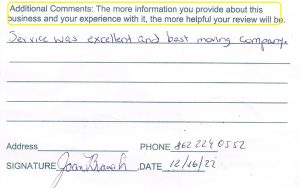 Additional Comments: The more information you provide about this
business and your experience with it, the more helpful your review will be.
Service was excellent and best moving company.
Address PHONE 862 224 0552
SIGNATURE Joan DATE 12/16/22